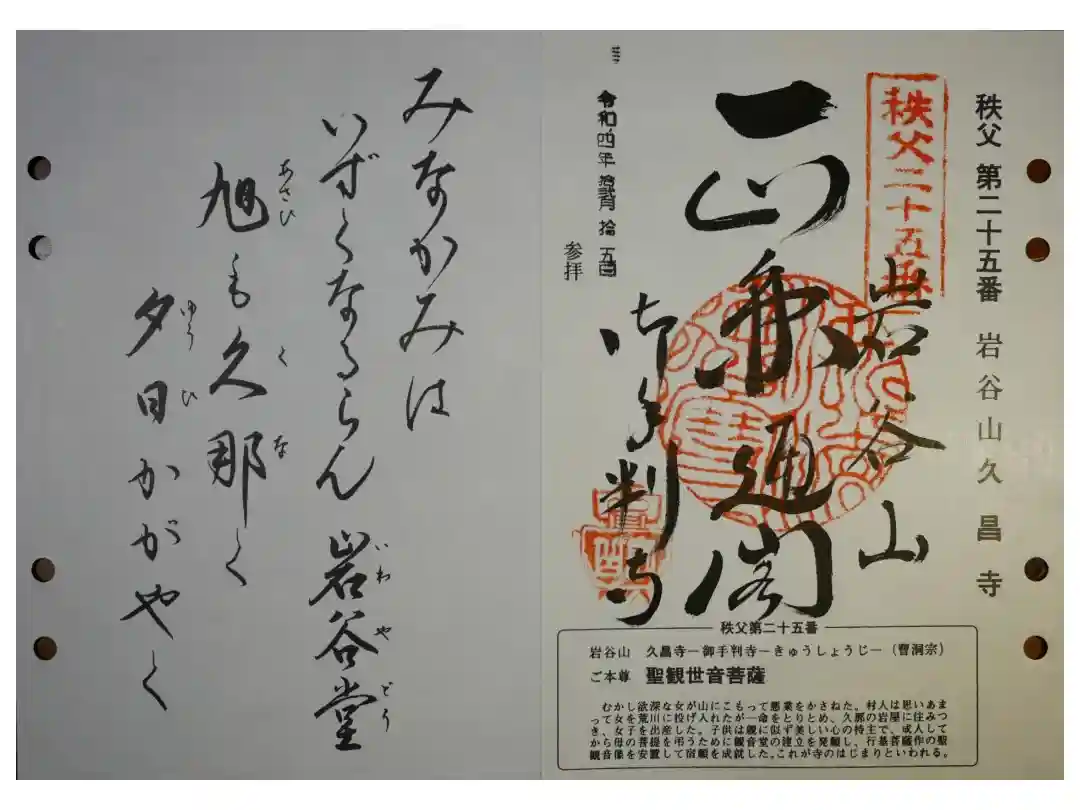 秩父 第二十五番 岩谷山久昌寺
秩父二十五番
岩谷山
通閣
御手判寺
令和四年 拾弐月 拾五日
参拝
秩父第二十五番
岩谷山 久昌寺―御手判寺―きゅうしょうじ―(曹洞宗)
ご本尊 聖観世音菩薩
むかし欲深な女が山にこもって悪業をかさねた。村人は思いあま
って女を荒川に投げ入れたが一命をとりとめ、久那の岩屋に住みつ
き、女子を出産した。子供は親に似ず美しい心の持主で、成人して
から母の菩提を弔うために観音堂の建立を発願し、行基菩薩作の聖
観音像を安置して宿願を成就した。これが寺のはじまりといわれる。
みなかみは
いずくなるらん 岩谷堂
いわやどう
旭も久那く
あさひ くな
夕日かがやく
ゆうひ